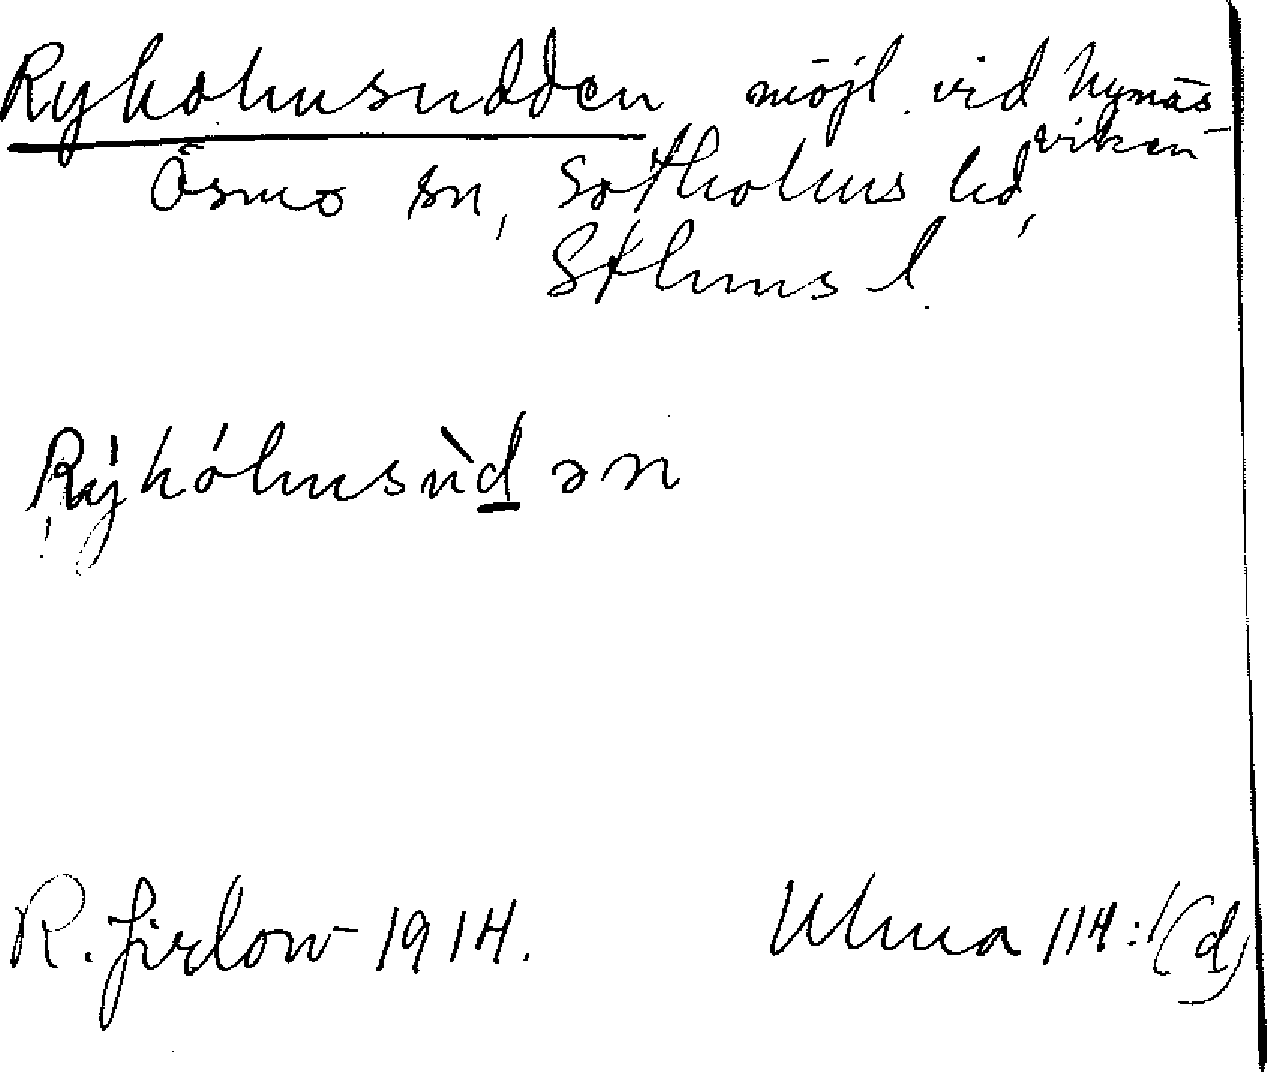 Rykolmsudden möjl. vid Nynäs
viken
Ösmo sn, Sotholms hd,
Sthlms l.
Rýkólmsùd ən
R. Jirlow 1914.
Ulma 114:1(d)